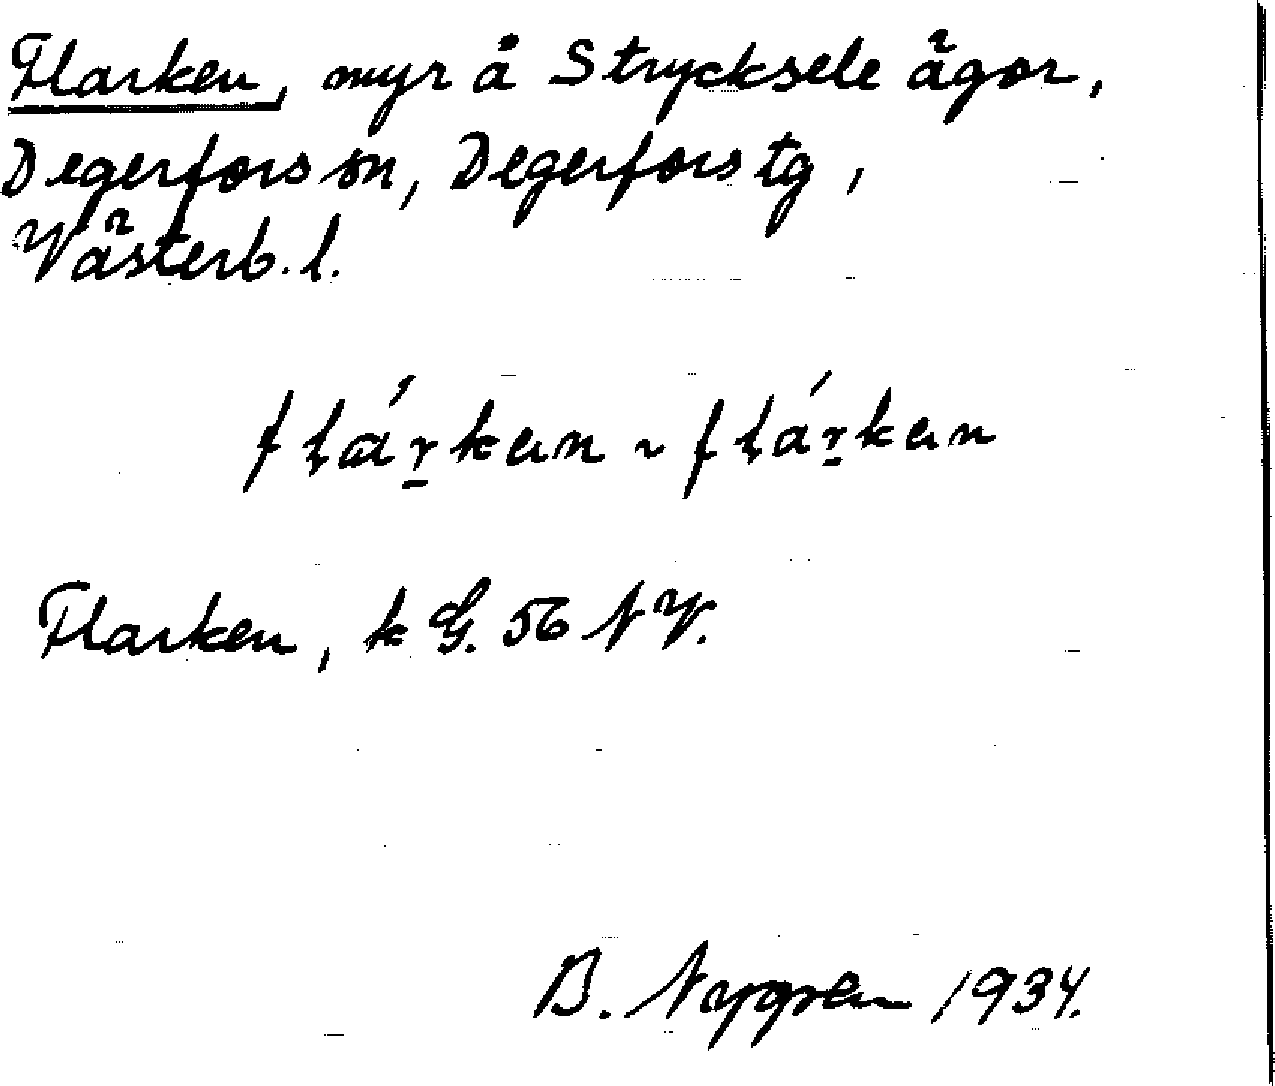 Flarken, myr å Strycksele ägor,
Degerfors sn, Degerfors tg,
Västerb. l.
flárkɐn ~ flárkɐn
Flarken, k G. 56 NV.
B. Nygren 1934.